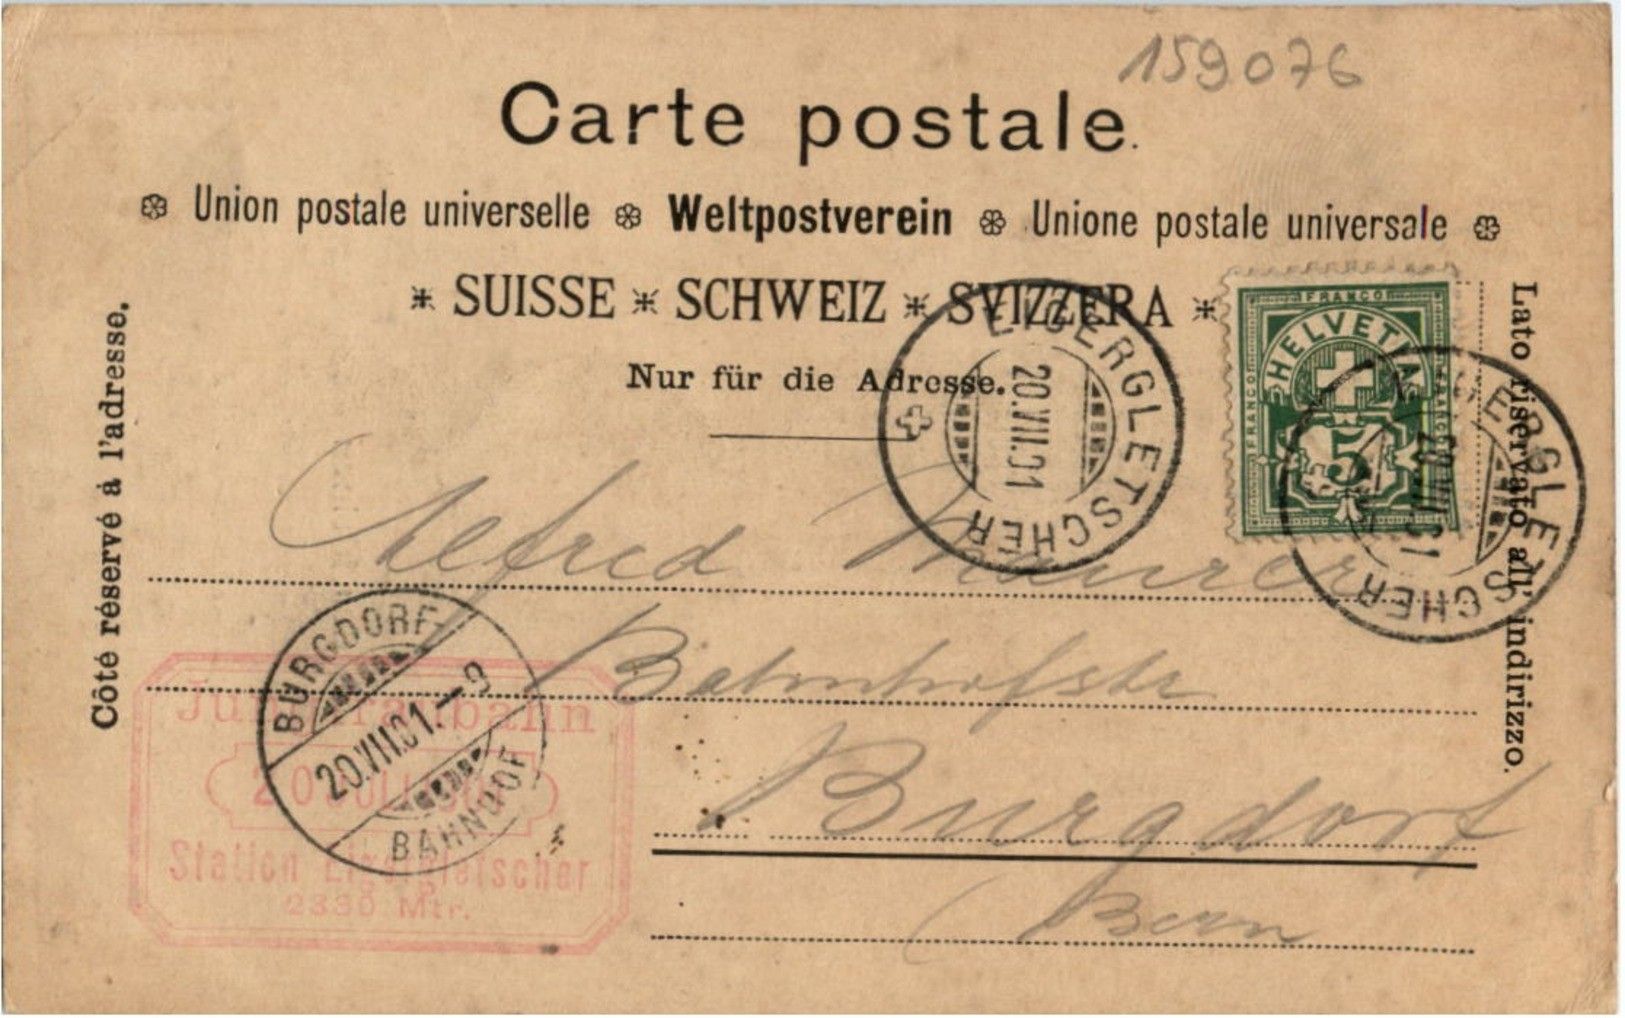 159076
Carte postale.
Union postale universelle Weltpostverein Unione postale universale
SUISSE * SCHWEIZ * SVIZZERA *
Nur für die Adresse.
Côté réservé à l'adresse.
Lato riservato all' indirizzo.
FRANCO
HELVETIA
FRANCO
FRANCO
5
EIGERGLETSCHER
20.VII.01
EIGERGLETSCHER
20.VII.01
Alfred Maurer
Bahnhofstr
Burgdorf
Bern
BURGDORF
20.VII.01.-9
BAHNHOF
Jungfraubahn
20 JULI
Station Eigergletscher
2330 Mtr.